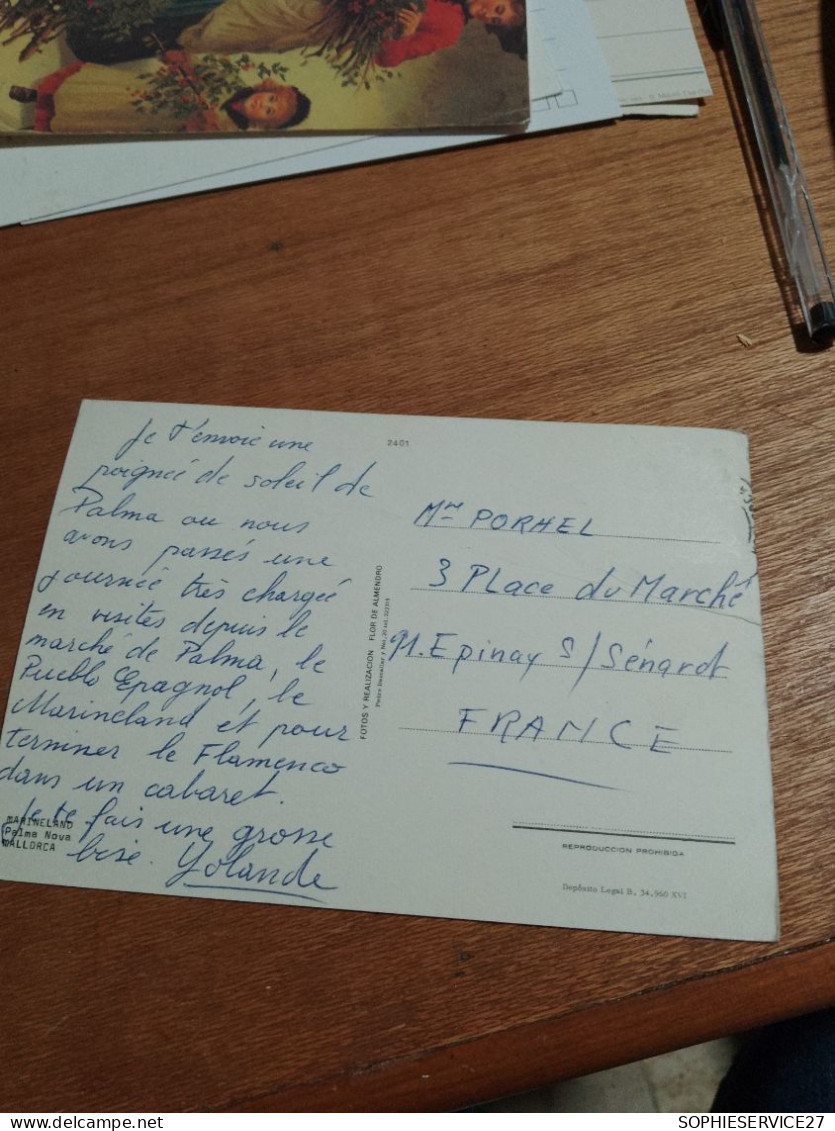 Je t'envoie une
poignée de soleil de
Palma ou nous
avons passés une
journée très chargée
en visites depuis le
marché de Palma, le
Pueblo Epagnol, le
Marineland et pour
terminer le Flamenco
dans un cabaret.
Je te fais une grosse
bise. Yolande
MARINELAND
Palma Nova
MALLORCA
2401
FOTOS Y REALIZACION FLOR DE ALMENDRO
Mme PORHEL
3 Place du Marché
91. Epinay S/Sénart
FRANCE
REPRODUCCION PROHIBIDA
Depósito Legal B. 34.960 XVI
SOPHIESERVICE27